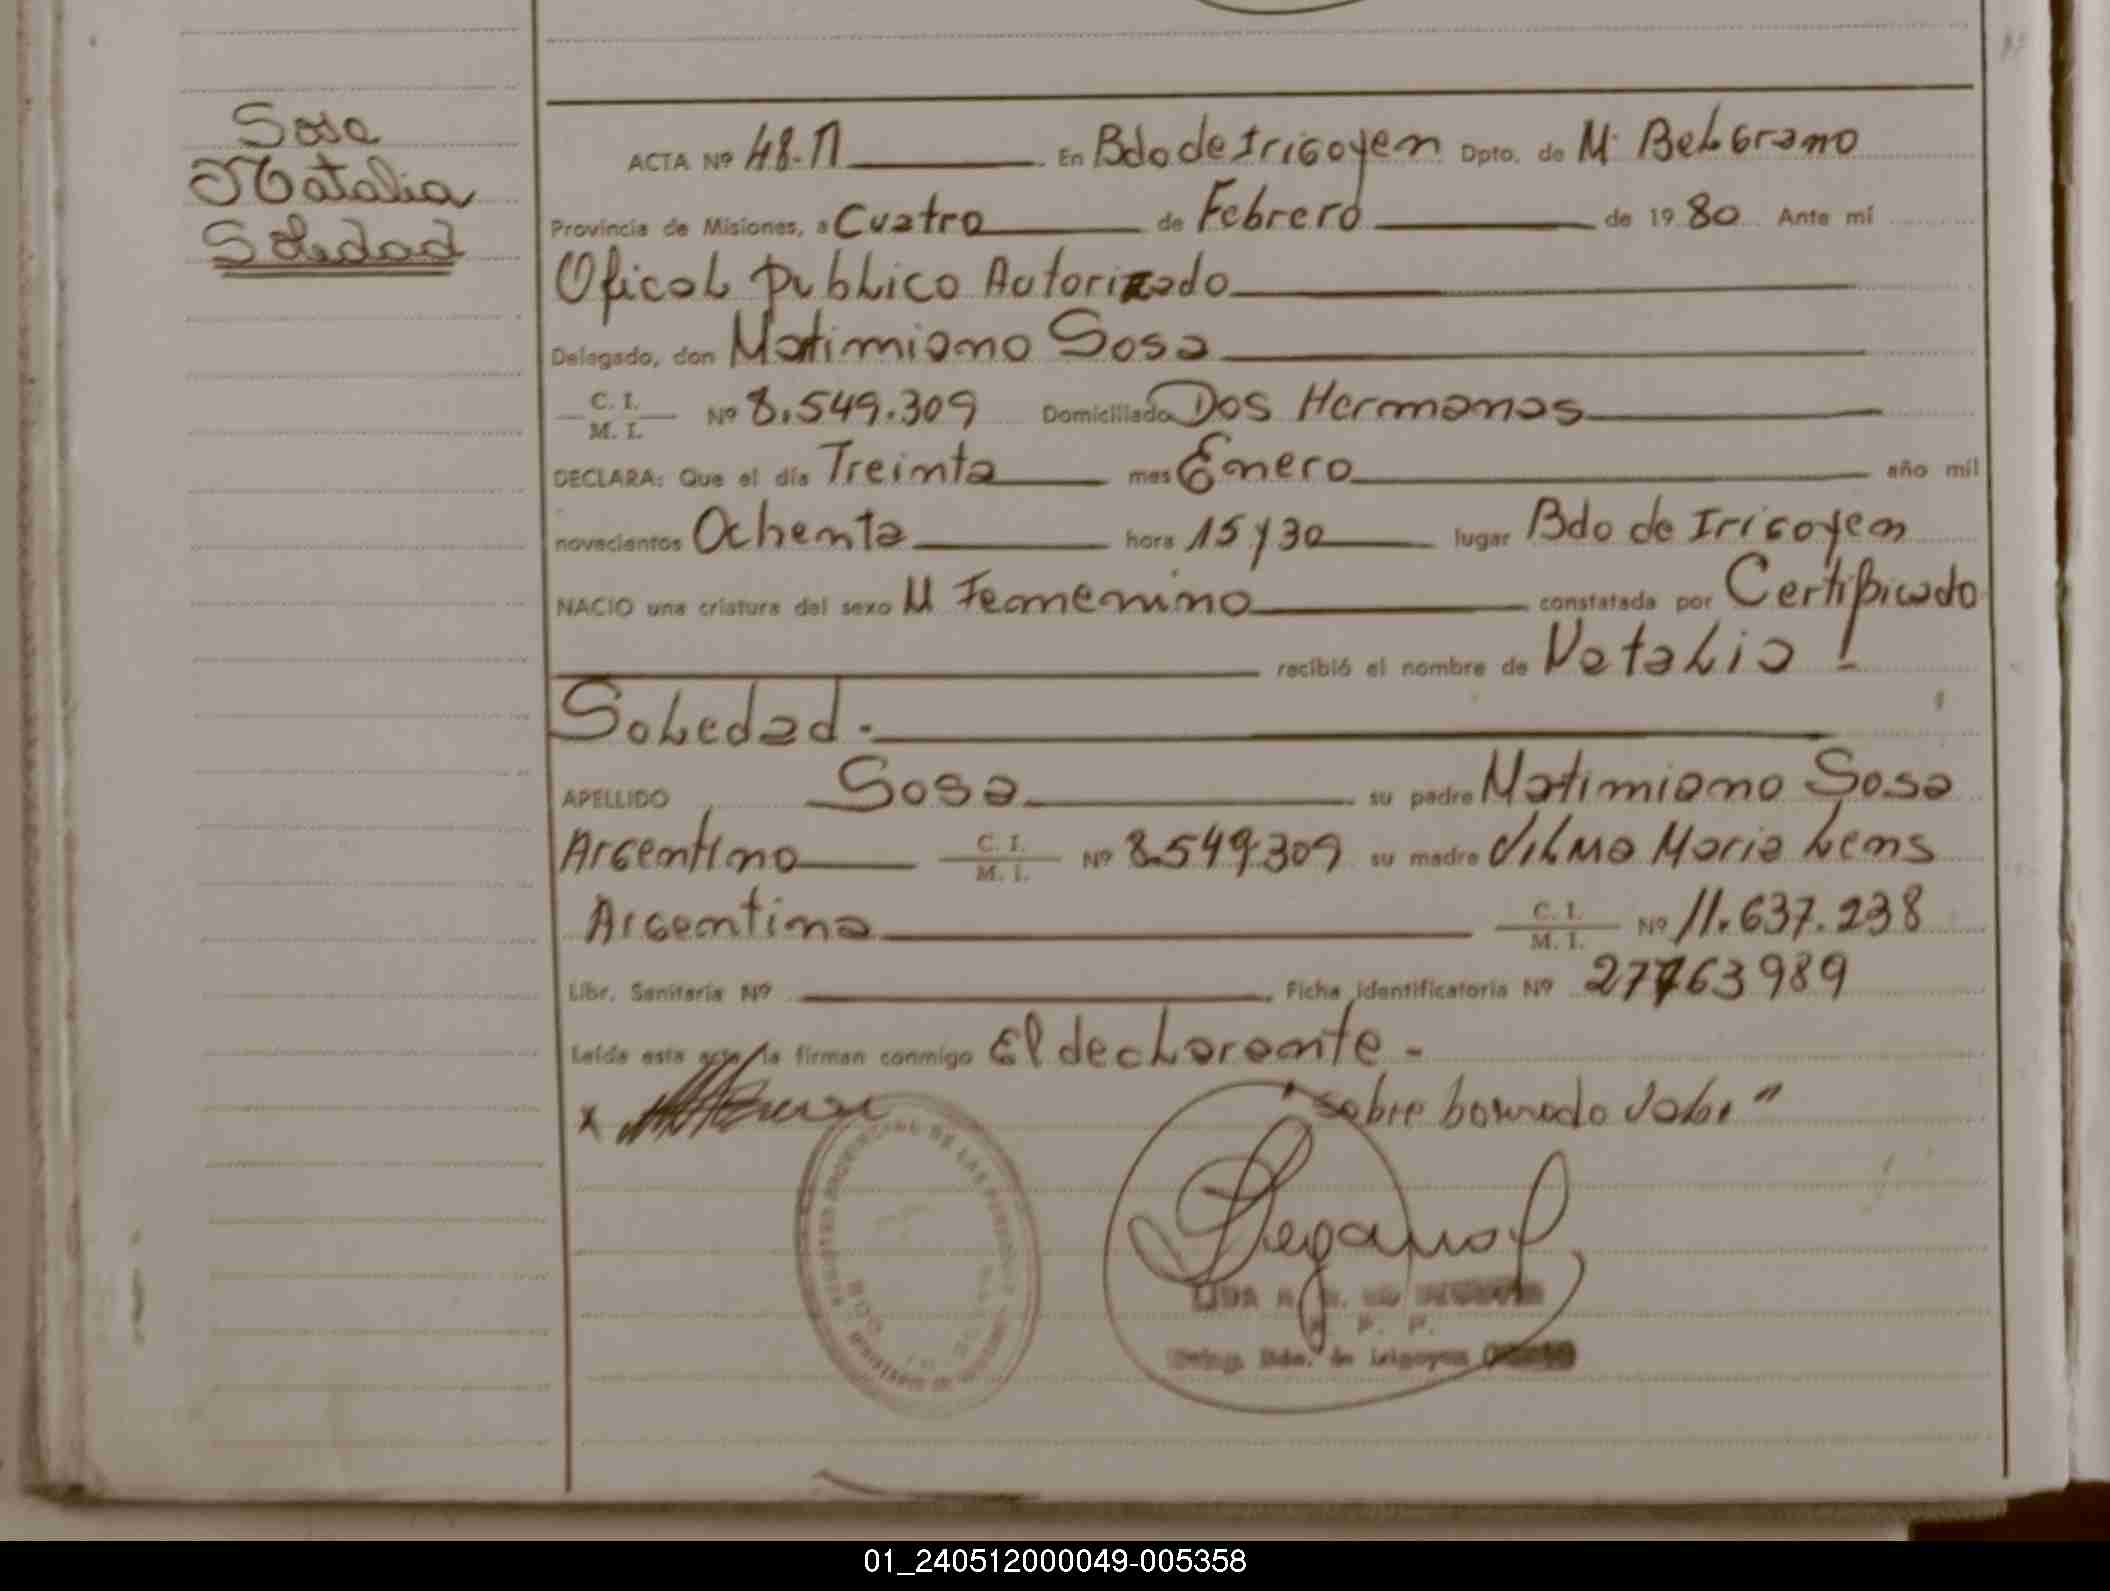 Sosa
Natalia
Soledad
ACTA Nº 48.N En Bdo de Irigoyen Dpto. de M. Belgrano
Provincia de Misiones, a Cuatro de Febrero de 1980 Ante mí
Oficol Publico Autorizado
Delegado, don Matimiano Sosa
C. I.
M. I. Nº 8.549.309 Domiciliado Dos Hermanas
DECLARA: Que el día Treinta mes Enero año mil
novecientos Ochenta hora 15 y 30 lugar Bdo de Irigoyen
NACIO una criatura del sexo M Femenino constatada por Certificado
recibió el nombre de Natalia
Soledad.
APELLIDO Sosa su padre Matimiano Sosa
Argentino C. I. M. I. Nº 8.549.309 su madre Vilma Maria Lens
Argentina C. I. M. I. Nº 11.637.238
Libr. Sanitaria Nº Ficha identificatoria Nº 27763989
Leída esta acta la firman conmigo El declarante -
x "sobre borrado Vale"
Deleg. Bdo. de Irigoyen
01_240512000049-005358